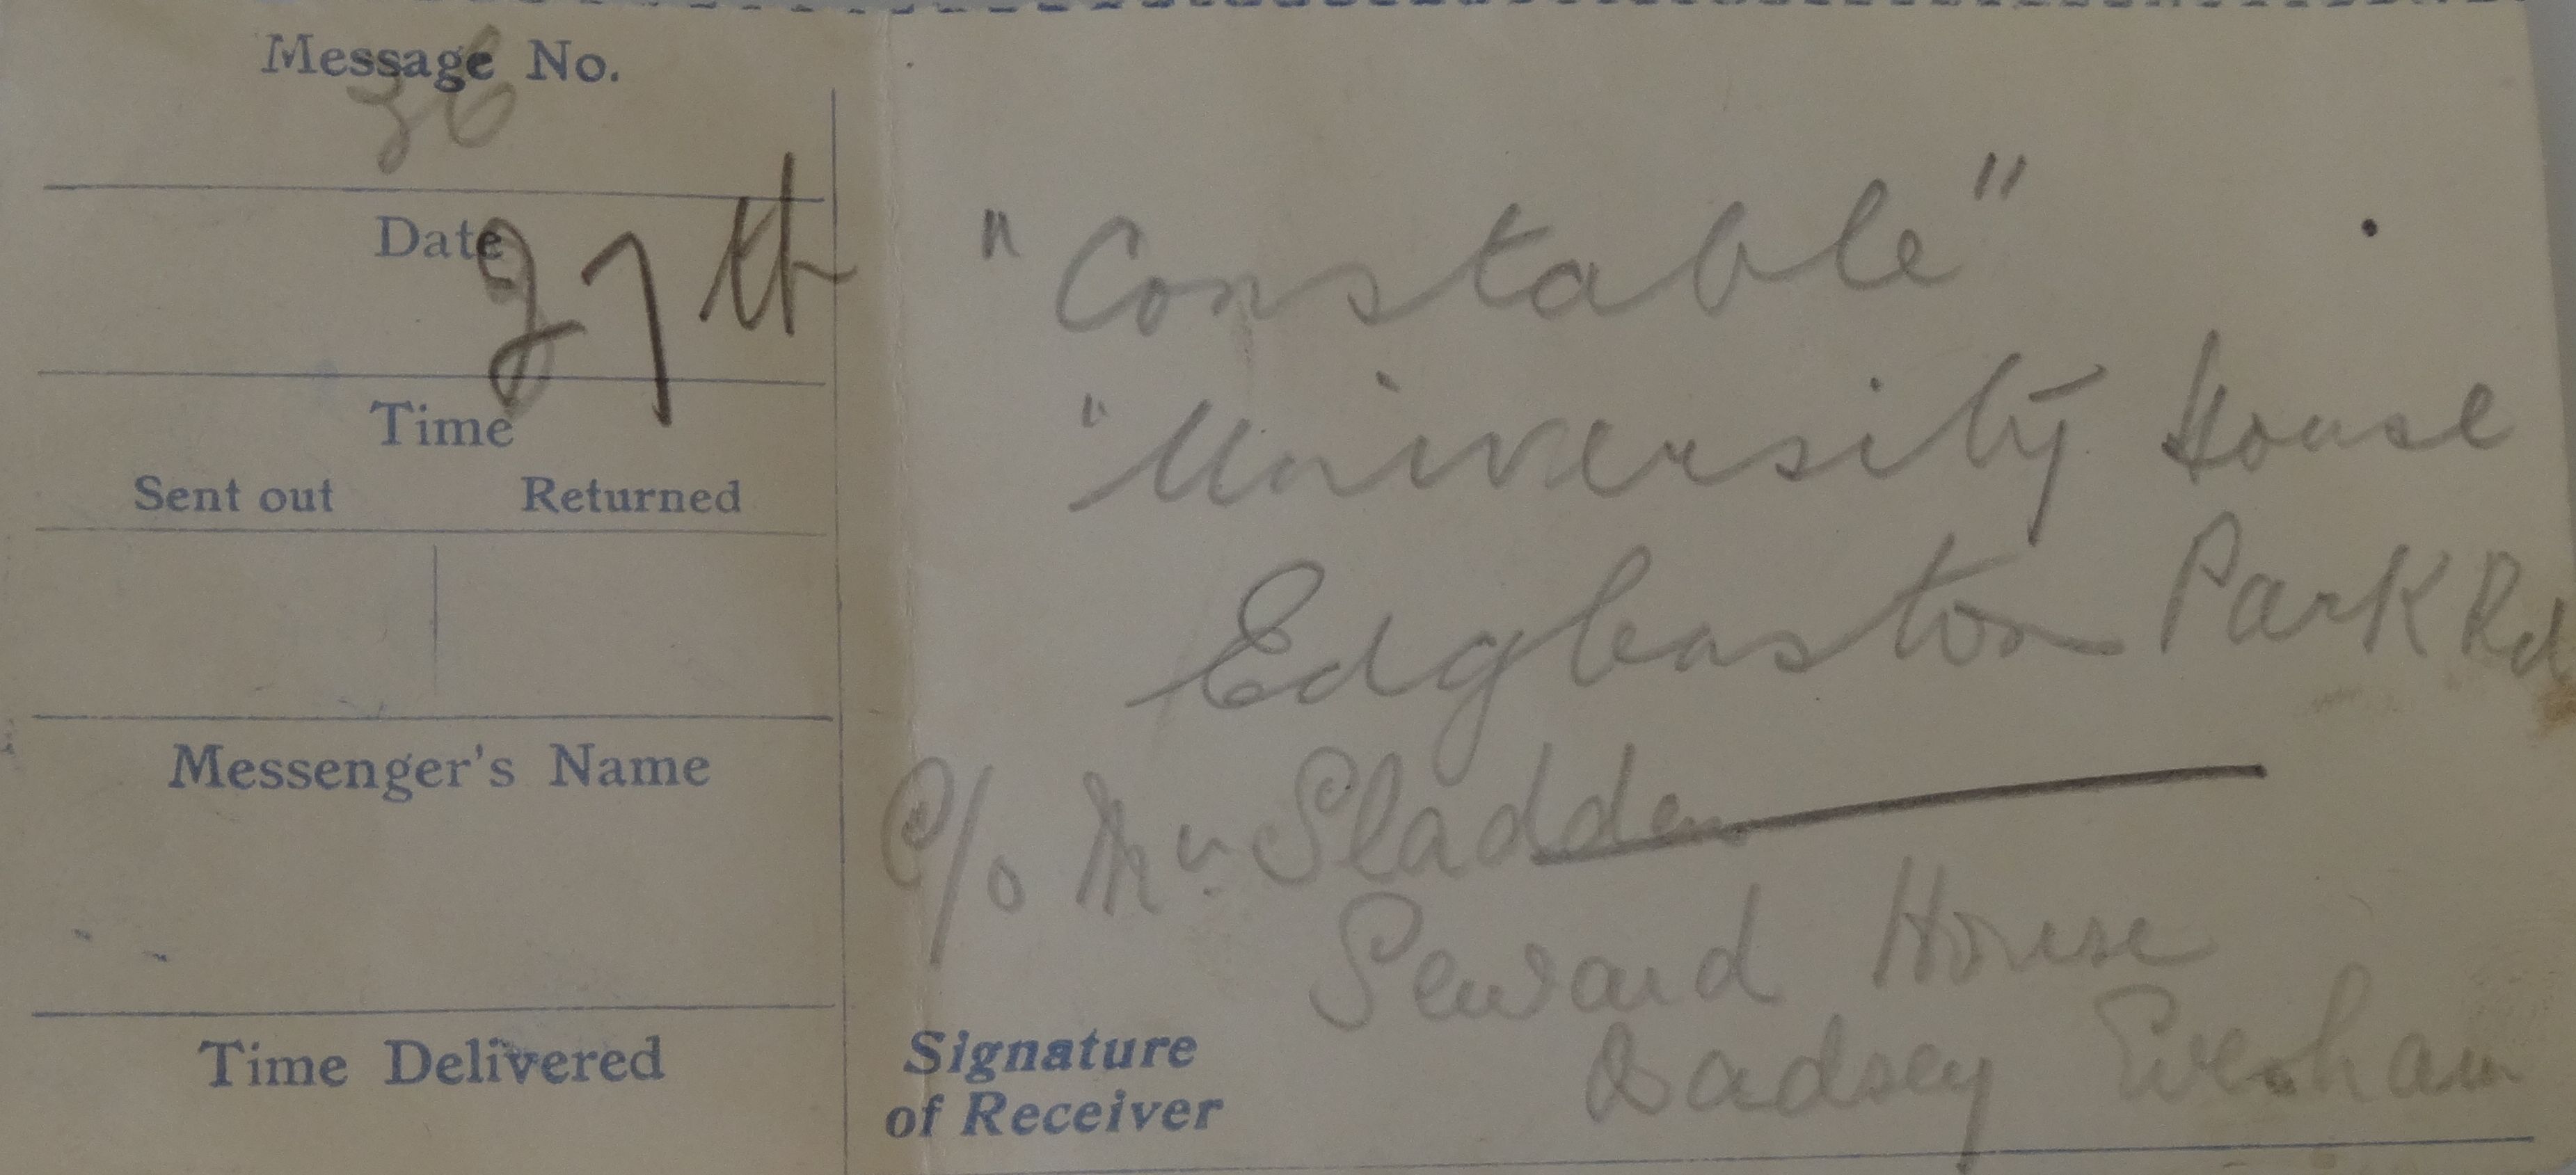 Message No.
36
Date 27th
Time
Sent out Returned
Messenger's Name
Time Delivered
"Constable"
"University House
Edgbaston Park Rd
C/o Mr Sladden
Seward House
Badsey Evesham
Signature
of Receiver